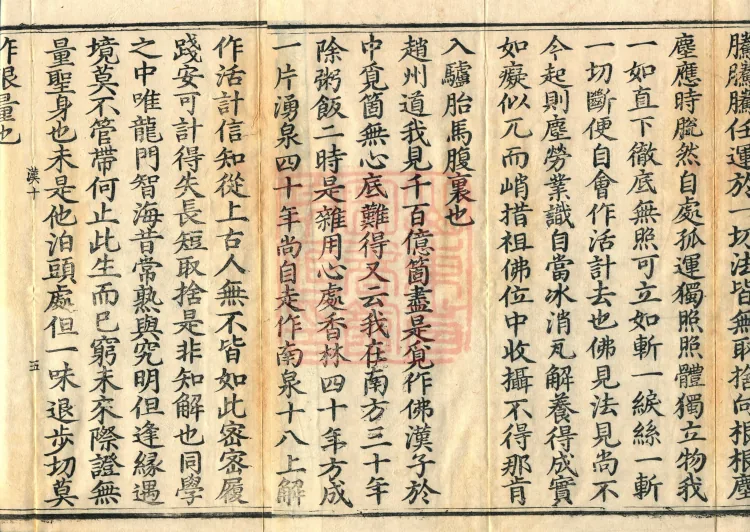 騰騰騰任運於一切法皆無取捨向根根塵
塵應時脫然自處孤運獨照照體獨立物我
一如直下徹底無照可立如斬一綟絲一斬
一切斷便自會作活計去也佛見法見尚不
令起則塵勞業識自當冰消瓦解養得成實
如癡似兀而峭措祖佛位中收攝不得那肯
入驢胎馬腹裏也
趙州道我見千百億箇盡是覓作佛漢子於
中覓箇無心底難得又云我在南方三十年
除粥飯二時是雜用心處香林四十年方成
一片湧泉四十年尚自走作南泉十八上解
作活計信知從上古人無不皆如此密密履
踐安可計得失長短取捨是非知解也同學
之中唯龍門智海昔常熟與究明但逢緣遇
境莫不管帶何止此生而已窮未來際證無
量聖身也未是他泊頭處但一味退步切莫
漢十
五
作限量也